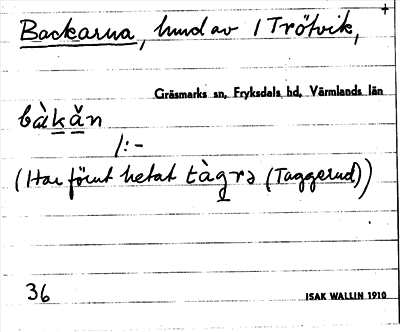 +
Backarna, hmd av 1 Tröfvik,
Gräsmarks sn, Fryksdals hd, Värmlands län
bàkǎn
/:-
(Har förut hetat tàgrə (Taggerud))
36
ISAK WALLIN 1910